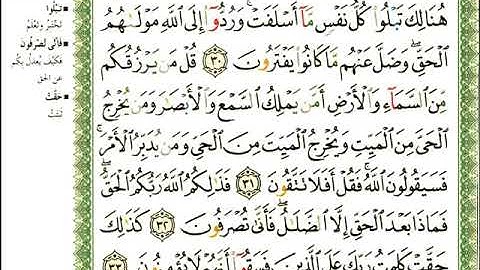 هُنَالِكَ تَبْلُوا۟ كُلُّ نَفْسٍ مَّآ أَسْلَفَتْ ۚ وَرُدُّوٓا۟ إِلَى ٱللَّهِ مَوْلَىٰهُمُ
ٱلْحَقِّ ۖ وَضَلَّ عَنْهُم مَّا كَانُوا۟ يَفْتَرُونَ ٣٠ قُلْ مَن يَرْزُقُكُم
مِّنَ ٱلسَّمَآءِ وَٱلْأَرْضِ أَمَّن يَمْلِكُ ٱلسَّمْعَ وَٱلْأَبْصَٰرَ وَمَن يُخْرِجُ
ٱلْحَىَّ مِنَ ٱلْمَيِّتِ وَيُخْرِجُ ٱلْمَيِّتَ مِنَ ٱلْحَىِّ وَمَن يُدَبِّرُ ٱلْأَمْرَ ۚ
فَسَيَقُولُونَ ٱللَّهُ ۚ فَقُلْ أَفَلَا تَتَّقُونَ ٣١ فَذَٰلِكُمُ ٱللَّهُ رَبُّكُمُ ٱلْحَقُّ ۖ
فَمَاذَا بَعْدَ ٱلْحَقِّ إِلَّا ٱلضَّلَٰلُ ۖ فَأَنَّىٰ تُصْرَفُونَ ٣٢ كَذَٰلِكَ
حَقَّتْ كَلِمَتُ رَبِّكَ عَلَى ٱلَّذِينَ فَسَقُوٓا۟ أَنَّهُمْ لَا يُؤْمِنُونَ ٣٣
تَبْلُوا
تَخْتَبِرُ وتَعْلَمُ
فَأَنَّى تُصْرَفُونَ
فكيف يُعْدَلُ بكم
عن الحق
حَقَّتْ
ثَبَتَتْ